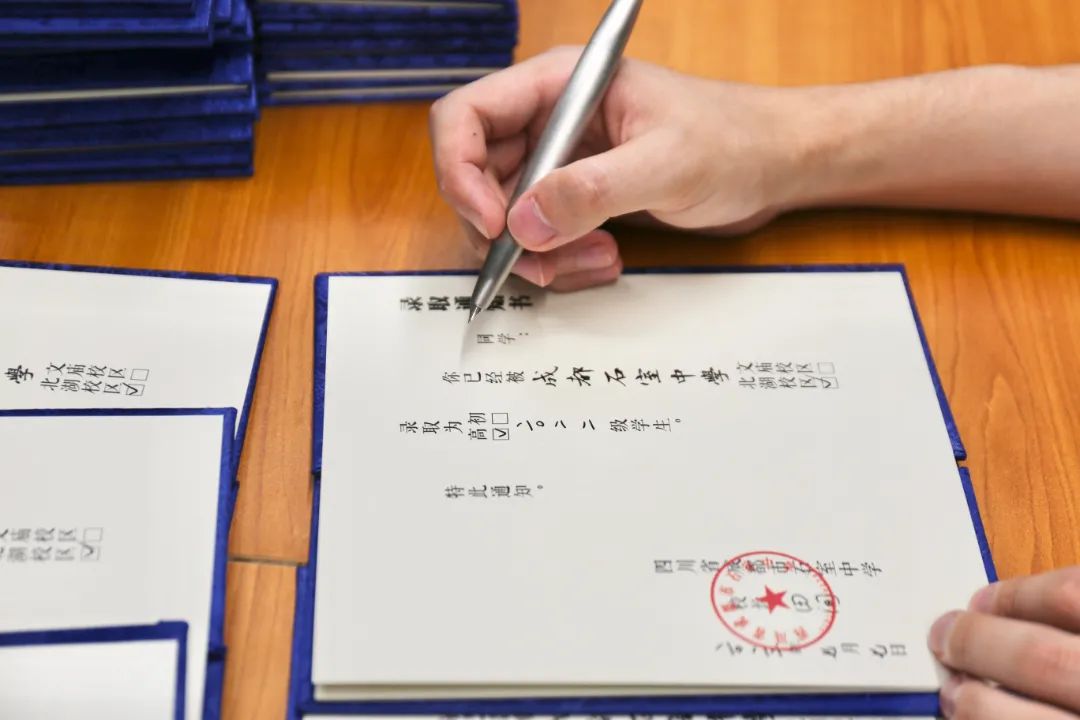 录取通知书
同学：
你已经被成都石室中學 文庙校区□
北湖校区☑
录取为 初□
高☑ 二〇二二级学生。
特此通知。
四川省成都市石室中学
校长 田间
月九日
學 文庙校区□
北湖校区☑
文庙校区□
湖校区☑